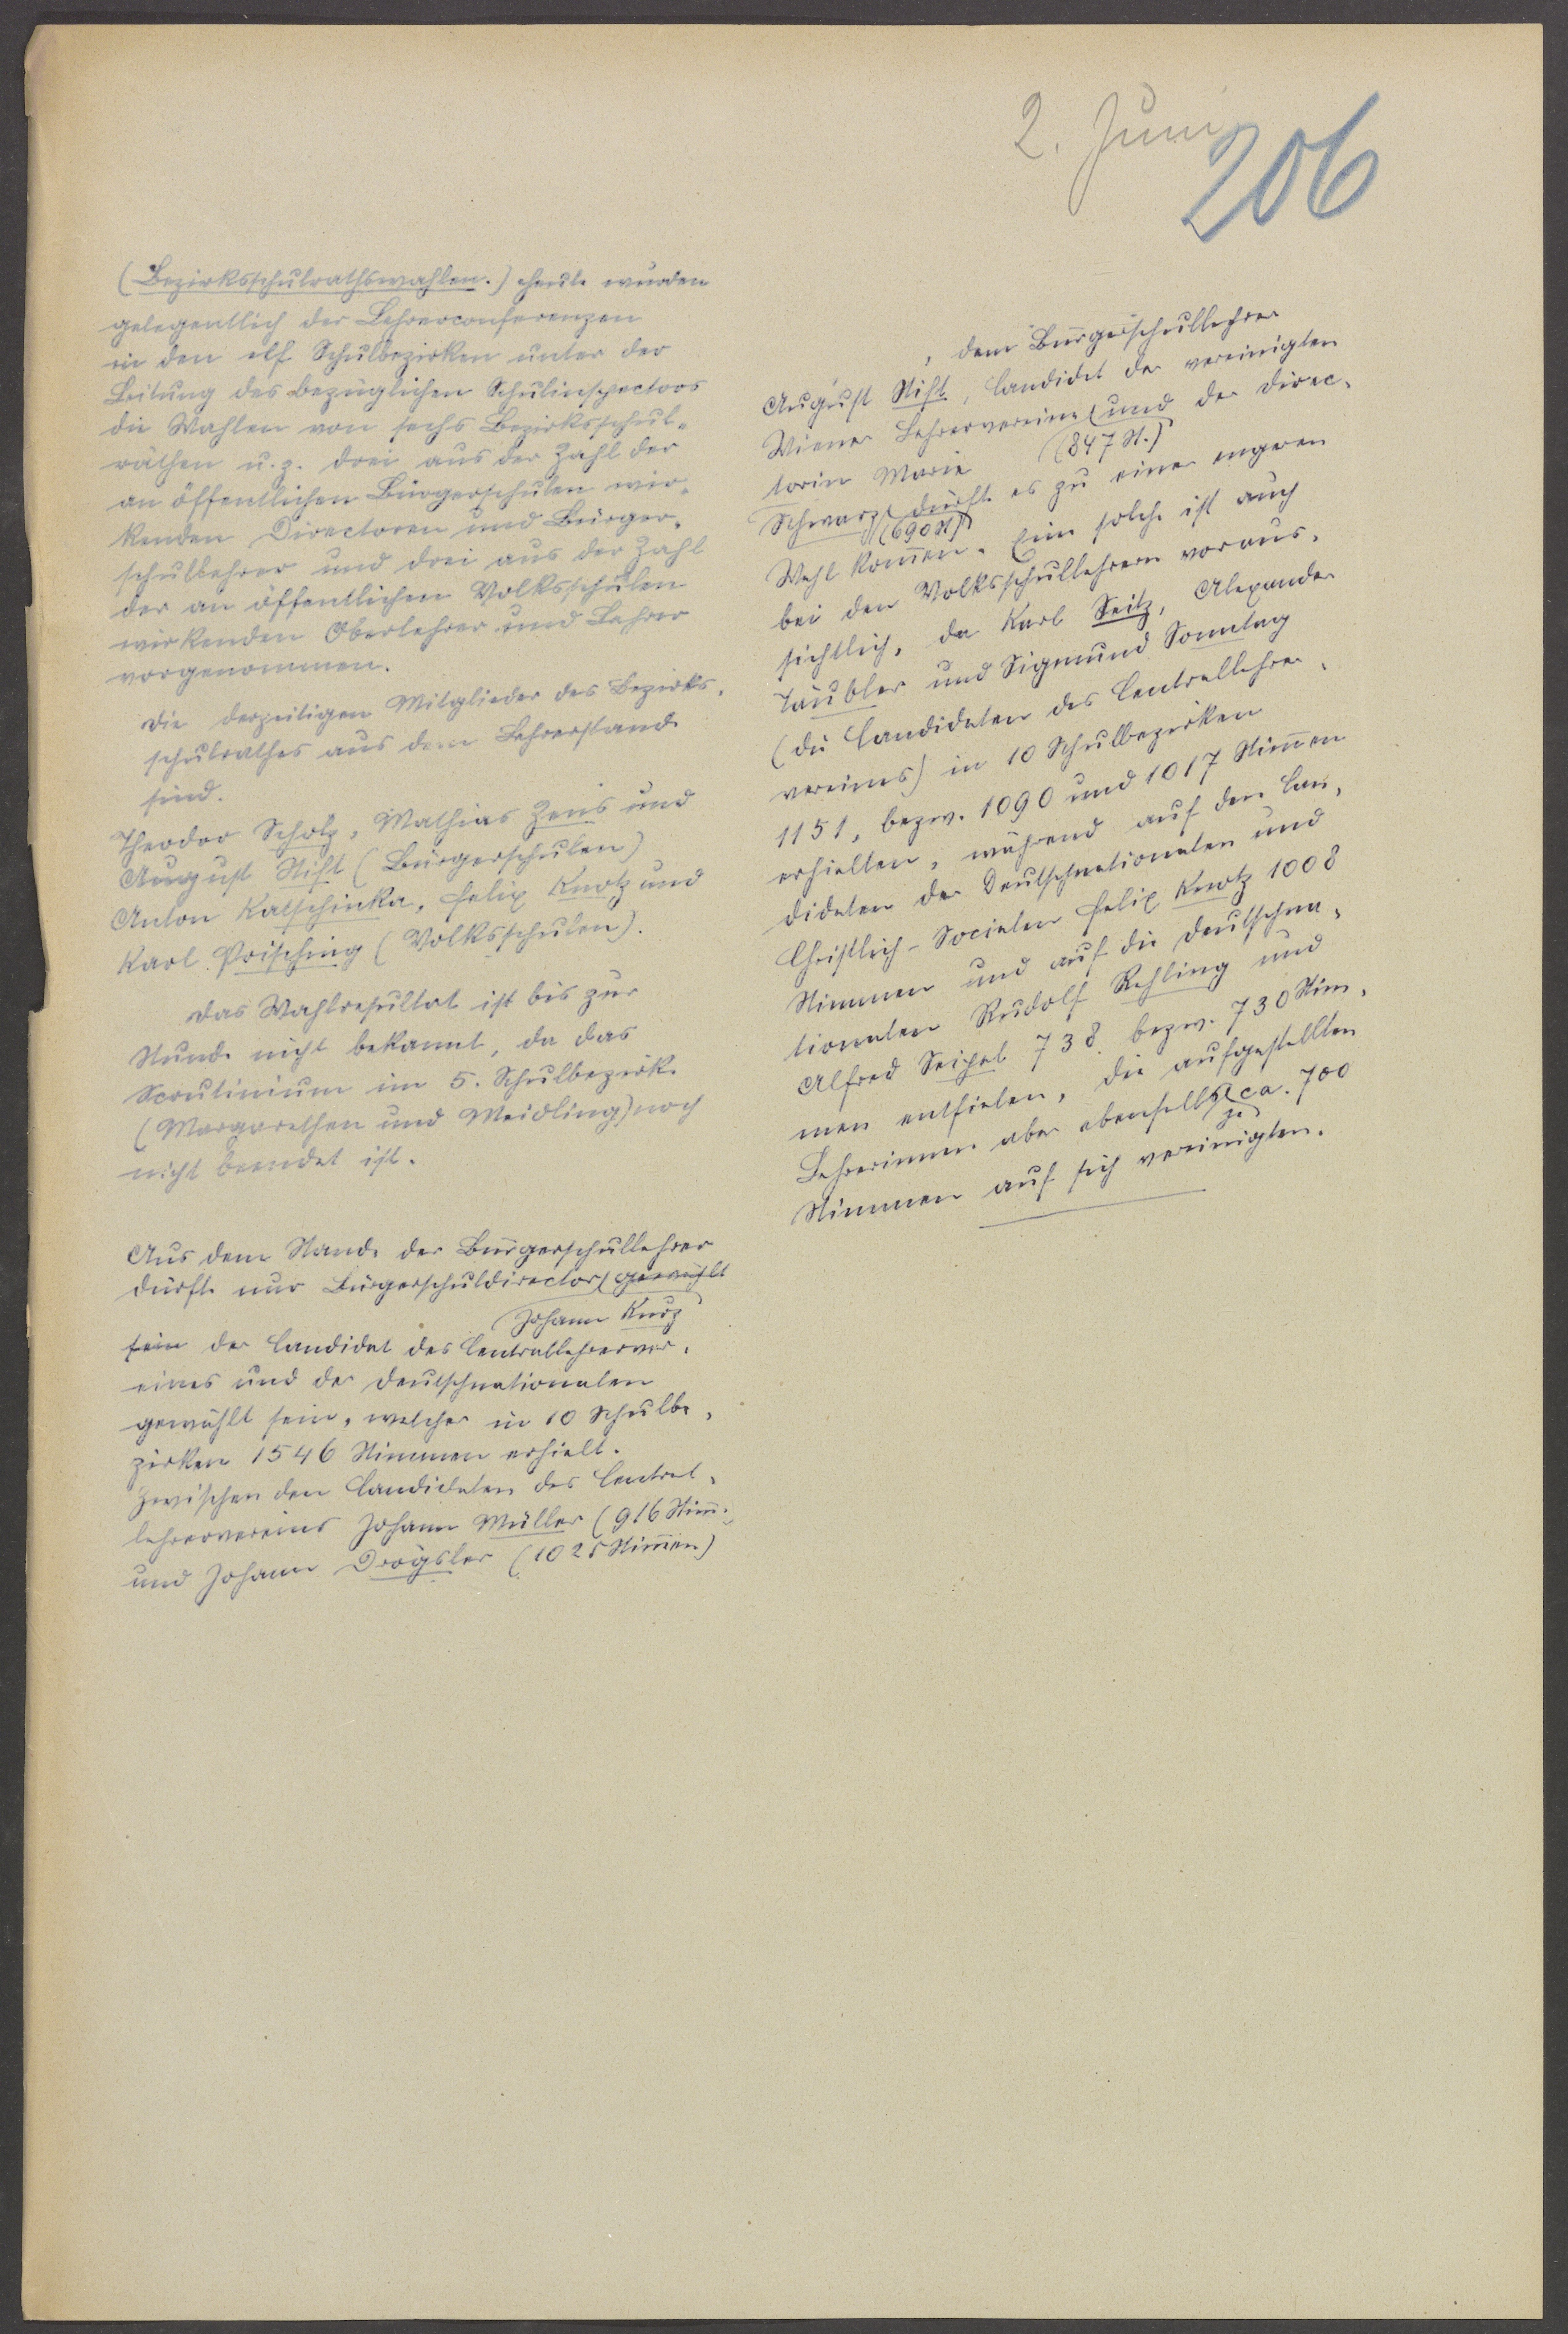 2. Juni
206
(Bezirksschulrathswahlen.) Heute wurden
gelegentlich der Lehrerconferenzen
in den elf Schulbezirken unter der
Leitung des bezüglichen Schulinspectors
die Wahlen von sechs Bezirksschul-
räthen u. z. drei aus der Zahl der
an öffentlichen Bürgerschulen wir-
kenden Directoren und Bürger-
schullehrer und drei aus der Zahl
der an öffentlichen Volksschulen
wirkenden Oberlehrer und Lehrer
vorgenommen.
Die derzeitigen Mitglieder des Bezirks-
schulrathes aus dem Lehrerstande
sind.
Theodor Scholz, Mathias Zens und
August Stift (Bürgerschulen)
Anton Katschinka, Felix Knotz und
Karl Prisching (Volksschulen).
Das Wahlresultat ist bis zur
Stunde nicht bekannt, da das
Scrutinium im 5. Schulbezirk
(Margarethen und Meidling) noch
nicht beendet ist.
Aus dem Stande der Bürgerschullehrer
dürfte nur Bürgerschuldirector gewählt
Johann Kurz
sein der Candidat des Centrallehrerver-
eines und der Deutschnationalen
gewählt sein, welcher in 10 Schulbe-
zirken 1546 Stimmen erhielt.
Zwischen den Candidaten des Central-
lehrervereins Johann Müller (916 Stim.)
und Johann Drögsler (1025 Stim̅en)
, dem Bürgerschullehrer
August Stift, Candidat der vereinigten
Wiener Lehrervereine und der Direc-
(847 St.)
torin Marie
Schwarz dürfte es zu einer engeren
(690 St)
Wahl kom̅en. Eine solche ist auch
bei den Volksschullehrern voraus-
sichtlich, da Karl Seitz, Alexander
Täubler und Sigmund Sonntag
(die Candidaten des Centrallehrer-
vereines) in 10 Schulbezirken
1151, bezw. 1090 und 1017 Stim̅en
erhielten, während auf den Can-
didaten der Deutschnationalen und
Christlich-Socialen Felix Knotz 1008
Stimmen und auf die Deutschna-
tionalen Rudolf Rehling und
Alfred Seipel 738 bezw. 730 Stim-
men entfielen, die aufgestellten
Lehrerinnen aber ebenfalls je ca. 700
Stimmen auf sich vereinigten.